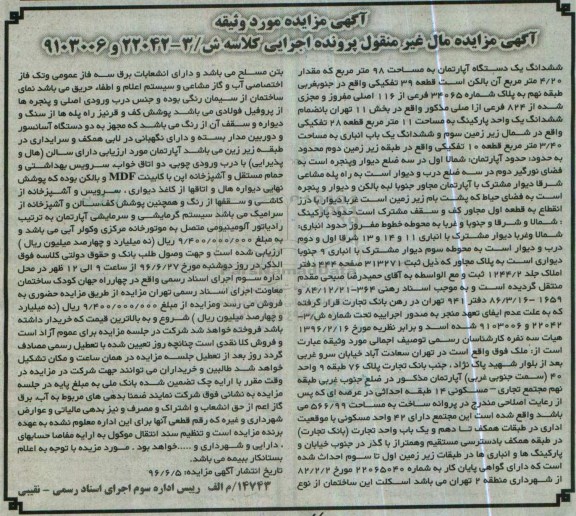 آگهی مزایده مورد وثیقه
آگهی مزایده مال غیر منقول پرونده اجرایی کلاسه ش/۳-۲۲۰۴۲ و ۹۱۰۳۰۰۶
ششدانگ یک دستگاه آپارتمان به مساحت ۹۸ متر مربع که مقدار
۴/۲۰ متر مربع آن بالکن است قطعه ۳۹ تفکیکی واقع در جنوبغربی
طبقه نهم به پلاک شماره ۳۴۰۶۵ فرعی از ۱۱۶ اصلی مفروز و مجزی
شده از ۸۲۴ فرعی از اصلی مذکور واقع در بخش ۱۱ تهران بانضمام
ششدانگ یک واحد پارکینگ به مساحت ۱۱ متر مربع قطعه ۲۸ تفکیکی
واقع در شمال زیر زمین سوم و ششدانگ یک باب انباری به مساحت
۳/۴۰ متر مربع قطعه ۱۰ تفکیکی واقع در طبقه زیر زمین دوم محدود
به حدود: حدود آپارتمان: شمالا اول در سه ضلع دیوار وپنجره است به
فضای نورگیر دوم در سه ضلع درب و دیوار است به راه پله مشاعی
شرقا دیوار مشترک با آپارتمان مجاور جنوبا لبه بالکن و دیوار و پنجره
است به فضای حیاط که پشت بام زیر زمین است غربا دیوار با درز
انقطاع به قطعه اول مجاور کف و سقف مشترک است حدود پارکینگ
: شمالا و شرقا و جنوبا و غربا به محوطه خطوط مفروز حدود انباری:
شمالا وغربا دیوار مشترک با انباری ۱۱ و ۱۴ و ۱۳ شرقا اول و دوم
درب و دیوار است به محوطه سوم دیوار مشترک با انباری ۹ جنوبا
دیواری است به پلاک مجاور که ذیل ثبت ۳۱۳۲۷۱ صفحه ۴۴۴ دفتر
املاک جلد ۱۲۴۴/۲ ثبت و مع الواسطه به آقای حمیدرضا صبحی مقدم
منتقل گردیده است و به موجب اسناد رهنی ۳۶۴-۸۴/۱۲/۲۱ و
۱۶۵۹-۸۶/۳/۱۶ دفتر ۹۴۱ تهران در رهن بانک تجارت قرار گرفته
که به علت عدم ایفای تعهد منجر به صدور اجراییه تحت شماره ش/۳-
۲۲۰۴۲ و ۹۱۰۳۰۰۶ شده است و برابر نظریه مورخ ۱۳۹۶/۲/۱۶
هیات سه نفره کارشناسان رسمی توصیف اجمالی مورد وثیقه عبارت
است از: ملک فوق واقع است در تهران سعادت آباد خیابان سرو غربی
بعد از بلوار شهید پاک نژاد، جنب بانک تجارت پلاک ۷۶ طبقه ۹ واحد
۴۰ (سمت جنوبی غربی) آپارتمان مذکور در ضلع جنوب غربی طبقه
نهم مجتمع تجاری- مسکونی ۱۴ طبقه احداثی در عرصه ای که پس
از رعایت اصلاحی مندرج در پروانه ساخت به مساحت ۵۶۶/۹۹ می
باشد واقع شده است این مجتمع دارای ۴۲ واحد مسکونی با موقعیت
اداری در طبقات همکف تا دهم و یک باب واحد تجارت (بانک تجارت)
در طبقه همکف بادسترسی مستقیم وهمتراز با گذر در جنوب خیابان و
پارکینگ ها و انباری ها در طبقات زیر زمین اول تا سوم احداث شده
است که دارای گواهی پایان کار به شماره ۲۲۰۶۵۰۴۰ مورخ ۸۲/۲/۲
از شهرداری منطقه ۲ تهران می باشد اسکلت این ساختمان از نوع
بتن مسلح می باشد و دارای انشعابات برق سه فاز عمومی وتک فاز
اختصاصی آب و گاز مشاعی و سیستم اعلام و اطفاء حریق می باشد نمای
ساختمان از سیمان رنگی بوده و جنس درب ورودی اصلی و پنجره ها
از پروفیل فولادی می باشد پوشش کف و قرنیز راه پله ها از سنگ و
دیواره و سقف آن از رنگ می باشد که مجهز به دو دستگاه آسانسور
و دوربین مدار بسته و دارای نگهبانی در لابی همکف و سرایداری در
طبقه زیر زمین می باشد آپارتمان مورد ارزیابی دارای سالن (هال و
پذیرایی) با درب ورودی چوبی، دو اتاق خواب، سرویس بهداشتی و
حمام مستقل و آشپزخانه اپن با کابینت MDF و بالکن بوده که پوشش
نهایی دیواره هال و اتاقها از کاغذ دیواری، سرویس و آشپزخانه از
کاشی و سقفها از رنگ و همچنین پوشش کف سالن و آشپزخانه از
سرامیک می باشد سیستم گرمایشی و سرمایشی آپارتمان به ترتیب
رادیاتور آلومینیومی متصل به موتورخانه مرکزی وکولر آبی می باشد و
به مبلغ ۹/۴۰۰/۰۰۰/۰۰۰ ریال (نه میلیارد و چهارصد میلیون ریال)
ارزیابی شده است و جهت وصول طلب بانک و حقوق دولتی کلاسه فوق
الذکر در روز دوشنبه مورخ ۹۶/۶/۲۷ از ساعت ۹ الی ۱۲ ظهر در محل
اداره سوم اجرای اسناد رسمی واقع در چهارراه جهان کودک ساختمان
معاونت اجرای اسناد رسمی تهران مزایده از طریق مزایده حضوری به
فروش می رسد ومزایده از مبلغ ۹/۴۰۰/۰۰۰/۰۰۰ ریال (نه میلیارد
و چهارصد میلیون ریال) شروع و به بالاترین قیمت که خریدار داشته
باشد فروخته خواهد شد شرکت در جلسه مزایده برای عموم آزاد است
و فروش کلا نقدی است چنانچه روز تعیین شده با تعطیل رسمی مصادف
گردد روز بعد از تعطیل جلسه مزایده در همان ساعت و مکان تشکیل
خواهد شد طالبین و خریداران می توانند جهت شرکت در مزایده در
وقت مقرر با ارایه چک تضمین شده بانک ملی به مبلغ پایه در جلسه
مزایده به نشانی فوق شرکت نمایند ضمنا بدهی های مربوط به آب، برق
گاز اعم از حق انشعاب و اشتراک و مصرف و نیز بدهی مالیاتی و عوارض
شهرداری و غیره که رقم قطعی آنها برای این اداره معلوم نشده به عهده
برنده مزایده است و تنظیم سند انتقال موکول به ارایه مفاصا حسابهای
، دارایی و شهرداری و .....خواهد بود. مورد مزیده با توجه به اعلام
بستانکار ببیمه می باشد.
تاریخ انتشار آگهی مزایده: ۹۶/۶/۵
۱۴۷۴۳/م الف رییس اداره سوم اجرای اسناد رسمی - نقیبی